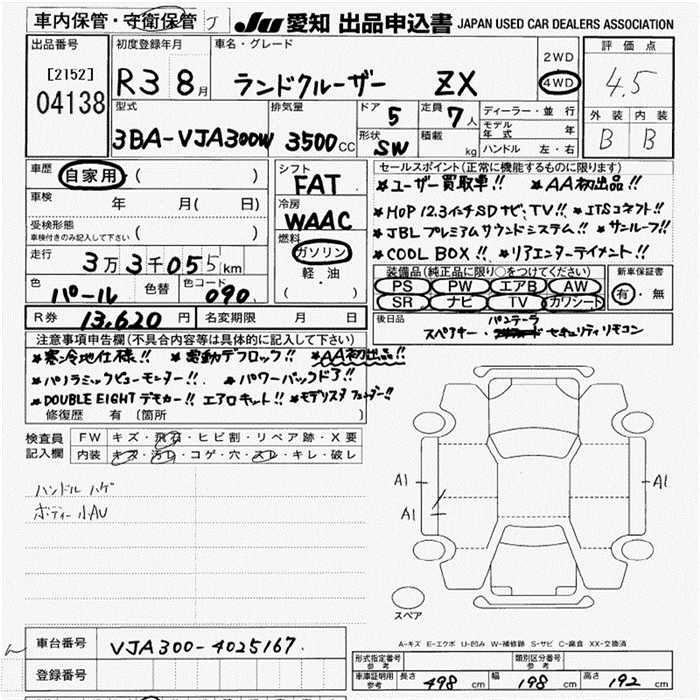 車内保管・守衛保管 JU 愛知 出品申込書 JAPAN USED CAR DEALERS ASSOCIATION
出品番号
[2152]
04138
初度登録年月
R3 8月
車名・グレード
ランドクルーザー ZX
2WD
4WD
評価点
4.5
外装 内装
B B
型式
3BA-VJA300W
排気量
3500cc
ドア
5
定員
7人
形状
SW
積載
kg
ディーラー・並行
モデル年式 年
ハンドル 左・右
車歴 自家用 ( )
車検 年 月( 日)
受検形態
車検付きのみ記入して下さい ( )
走行 3万3千055km
色 パール 色替 色コード 090
シフト
FAT
冷房
WAAC
燃料
ガソリン
軽・油
( )
セールスポイント(正常に機能するものに限ります)
★ユーザー買取車!! ★AA初出品!!
★HOP 12.3インチSDナビ、TV!! ★JTSコネクト!!
★JBLプレミアムサウンドシステム!! ★サンルーフ!!
★COOL BOX!! ★リアエンターテイメント!!
装備品(純正品に限り○をつけてください)
PS PW エアB AW
SR ナビ TV カワシート
新車保証書
有・無
R券 13,620円 名変期限 月 日
後日品
パンテーラ
スペアキー・ セキュリティリモコン
注意事項申告欄(不具合内容等は具体的に記入して下さい)
★寒冷地仕様!! ★電動デフロック!! ★AA初出品!!
★パノラミックビューモンター!! ★パワーバックドア!!
★DOUBLE EIGHTデモカー!! エアロキット!! ★モデリスタフェンダー!!
修復歴 有 (箇所 )
検査員記入欄
FW キズ・飛石・ヒビ割・リペア跡・X要
内装 キズ・汚レ・コゲ・穴・スレ・キレ・破レ
ハンドル ハゲ
ボディー小AU
A1
A1
A1
スペア
A-キズ E-エクボ U-凹み W-補修跡 S-サビ C-腐食 XX-交換済
車台番号 VJA300-4025167
登録番号
形式指定番号 参考
類別区分番号 参考
車庫証明用参考 長さ 498 cm 幅 198 cm 高さ 192 cm